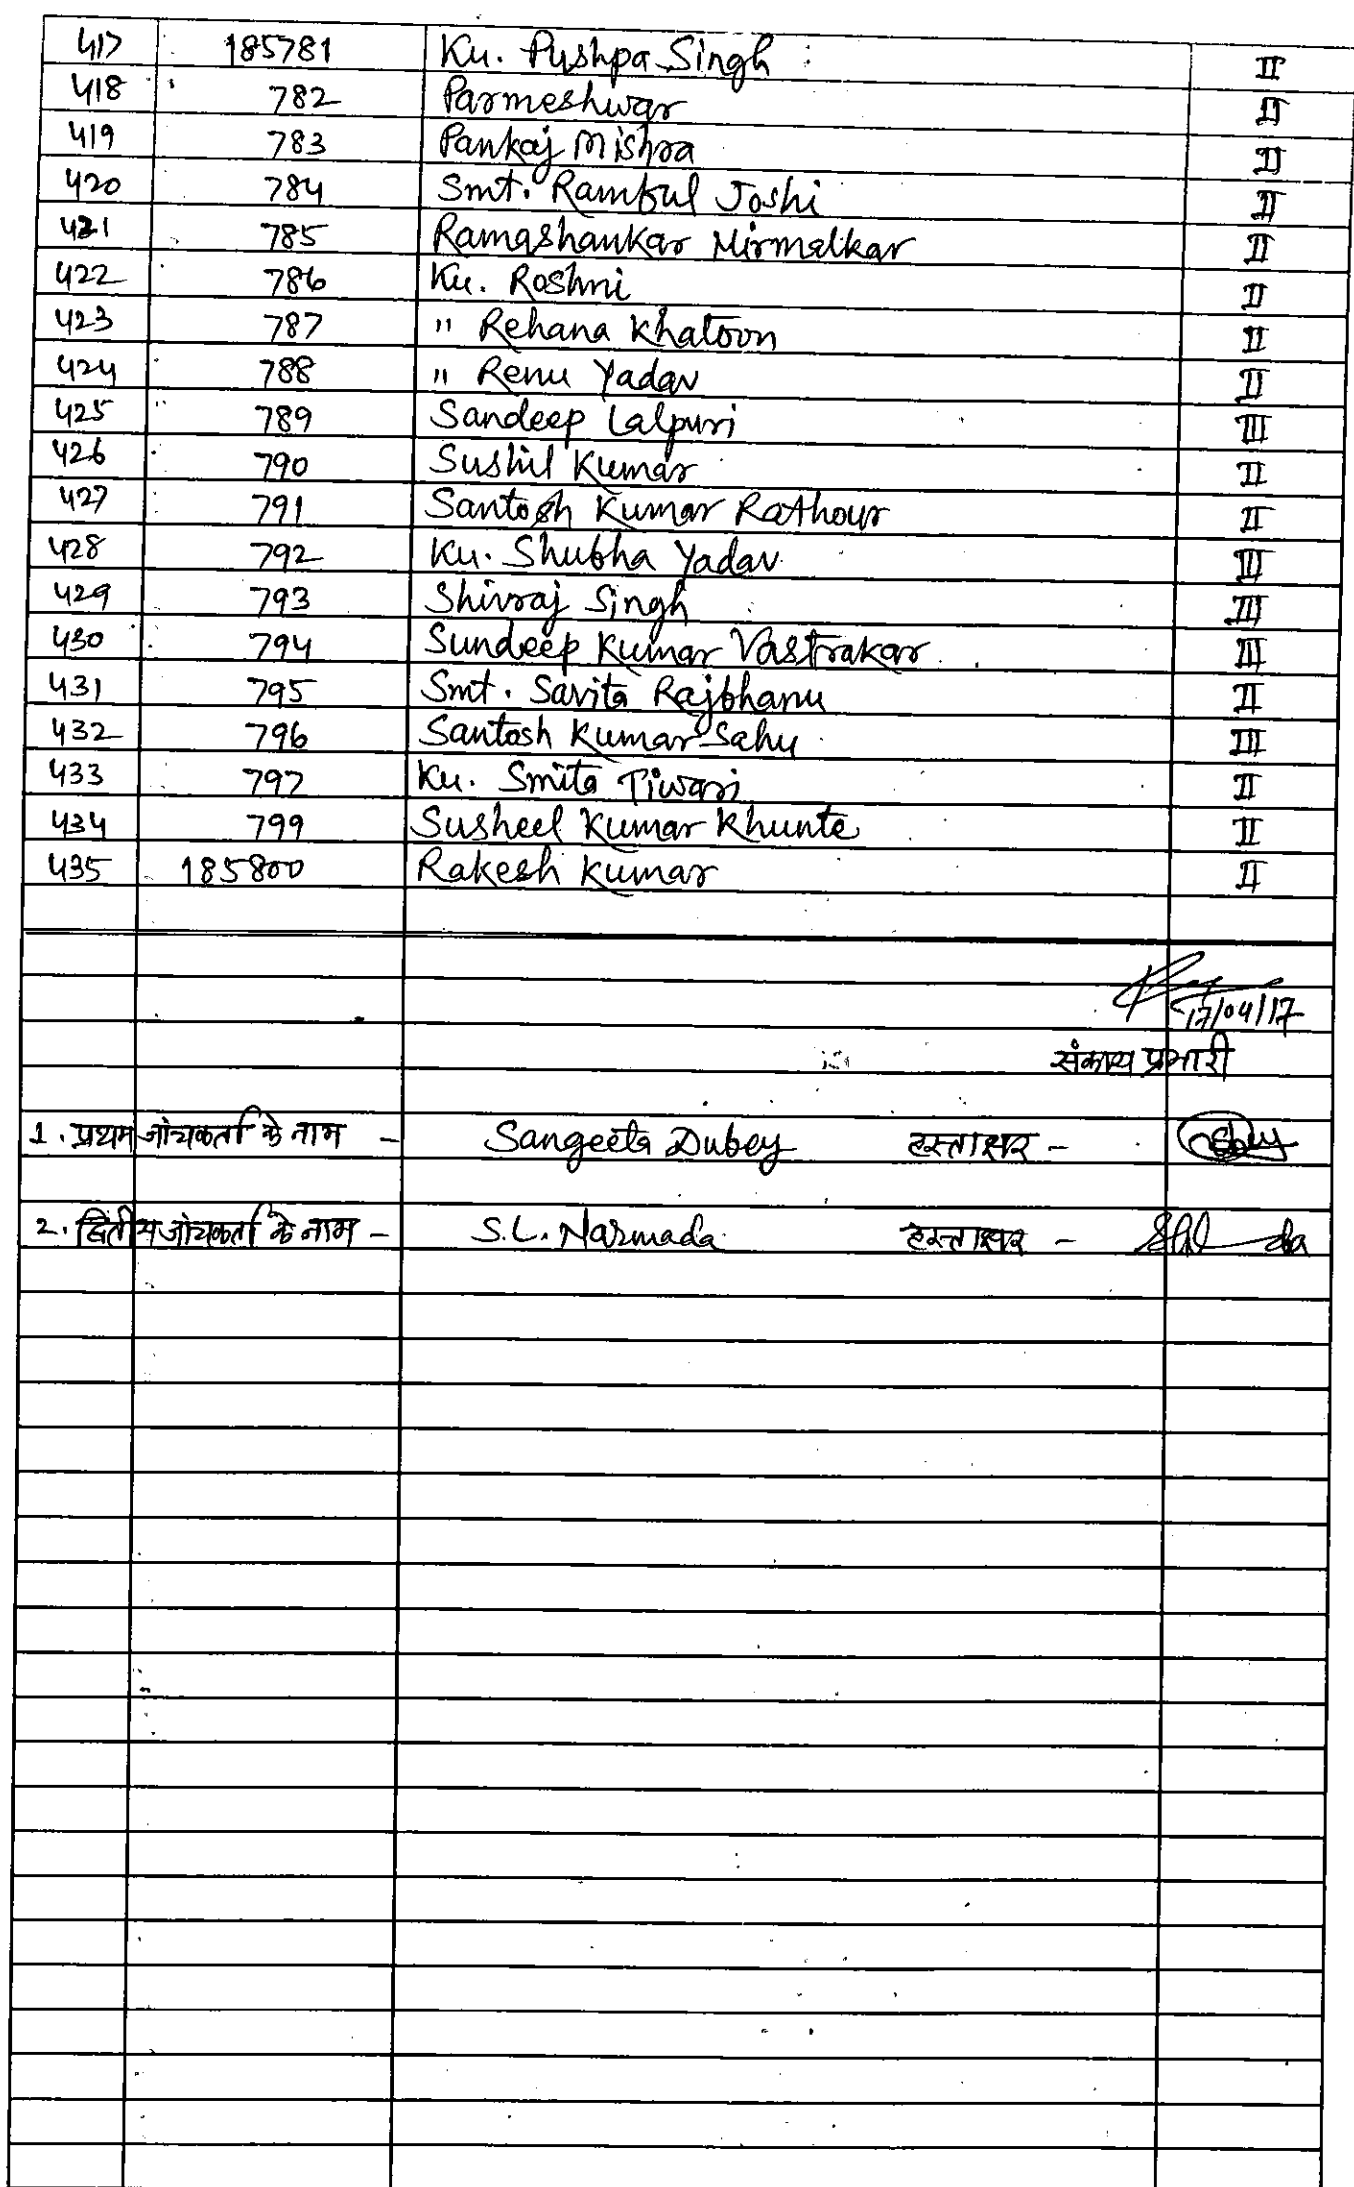 417 185781 Ku. Pushpa Singh II
418 782 Parmeshwar II
419 783 Pankaj Mishra II
420 784 Smt. Rambul Joshi II
421 785 Ramashankar Nirmalkar II
422 786 Ku. Roshni II
423 787 " Rehana Khatoon II
424 788 " Renu Yadav II
425 789 Sandeep Lalpuri III
426 790 Sushil Kumar II
427 791 Santosh Kumar Rathour II
428 792 Ku. Shubha Yadav III
429 793 Shivraj Singh III
430 794 Sundeep Kumar Vastrakar III
431 795 Smt. Savita Rajbhanu II
432 796 Santosh Kumar Sahu III
433 797 Ku. Smita Tiwari II
434 799 Susheel Kumar Khunte II
435 185800 Rakesh Kumar II
17/04/17
संकाय प्रभारी
1. प्रथम जांचकर्ता के नाम - Sangeeta Dubey हस्ताक्षर -
2. द्वितीय जांचकर्ता के नाम - S.L. Narmada हस्ताक्षर -